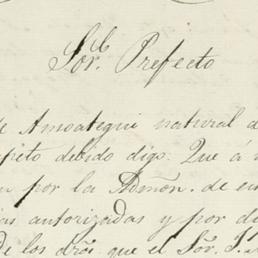 Sor. Prefecto
de Amoategui natural d
speto debido digo. Que á
por la Admōn. de
autorizadas y por d
de los drōs. que el Sōr. J.